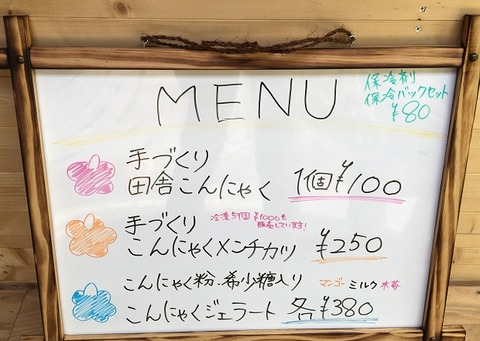 MENU
保冷剤
保冷バックセット
¥80
手づくり
田舎こんにゃく 1個¥100
手づくり
冷凍5個 ¥1000も
販売しています!
こんにゃくメンチカツ ¥250
こんにゃく粉・希少糖入り
マンゴー ミルク 木苺
こんにゃくジェラート 各¥380